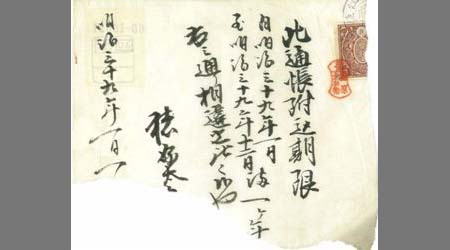 此通帳附込期限
自明治三十九年一月
至明治三十九年十二月満一ヶ年
右之通相違無之候也
明治三十九年一月一